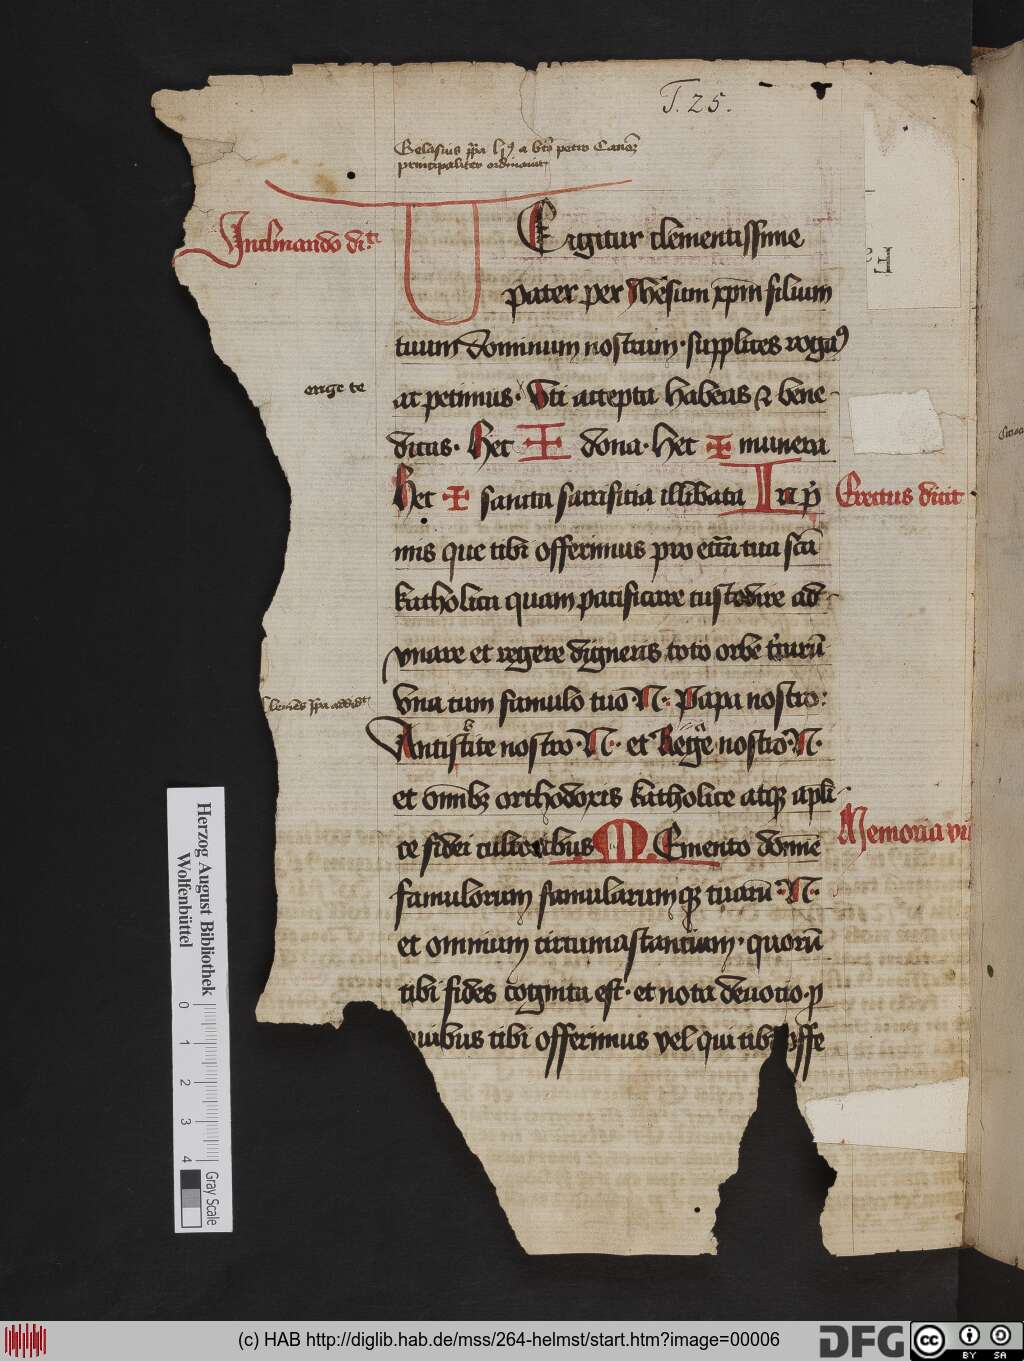 T. 25.
Gelasius pp̄a h̄ꝰ a bto petro Canoē
principaliter ordinauit
Inclinando dic̄
TE igitur clementissime
pater per Jhesum xpm̄ filium
tuum dominum nostrum· supplices rogaꝰ
erige te
ac petimus· Vti accepta habeas ⁊ bene-
dicas· Hec ✠ dona· hec ✠ munera
Hec ✠ sancta sacrificia illibata In p̄
Erectus dicit
mis que tibi offerimus pro eccīa tua scā
katholica quam pacificare custodire ad-
vnare et regere digneris toto orbe t'rarū
Clemēs pp̄a addidit
Vna cum famulo tuo·N· Papa nostro:
Antistite nostro·N· et Rege nostro·N·
et om̄ibꝫ orthodoxis katholice atqꝫ apl̄i-
ce fidei cultoribus MEmento domīe
Memoria vi
famulorum famularumqꝫ tuarū·N·
et omnium circumastancium· quorū
tibi fides cognita est· et nota deuotio· p
quibus tibi offerimus vel qui tibi offe
Herzog August Bibliothek
Wolfenbüttel
0 1 2 3 4
Gray Scale
(c) HAB http://diglib.hab.de/mss/264-helmst/start.htm?image=00006
DFG
CC BY SA